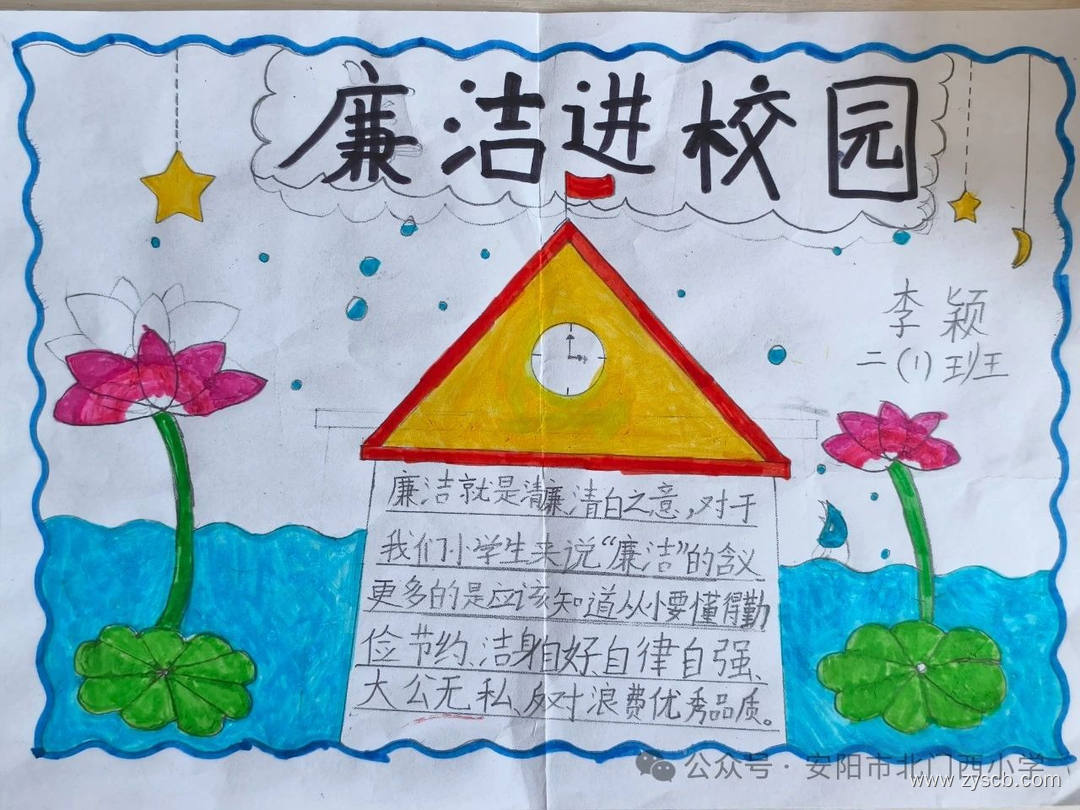 廉洁进校园
李颖
二(1)班
廉洁就是清廉、清白之意,对于
我们小学生来说“廉洁”的含义
更多的是应该知道从小要懂得勤
俭节约、洁身自好、自律自强、
大公无私、反对浪费优秀品质。
公众号·安阳市北门西小学
www.zyscb.com